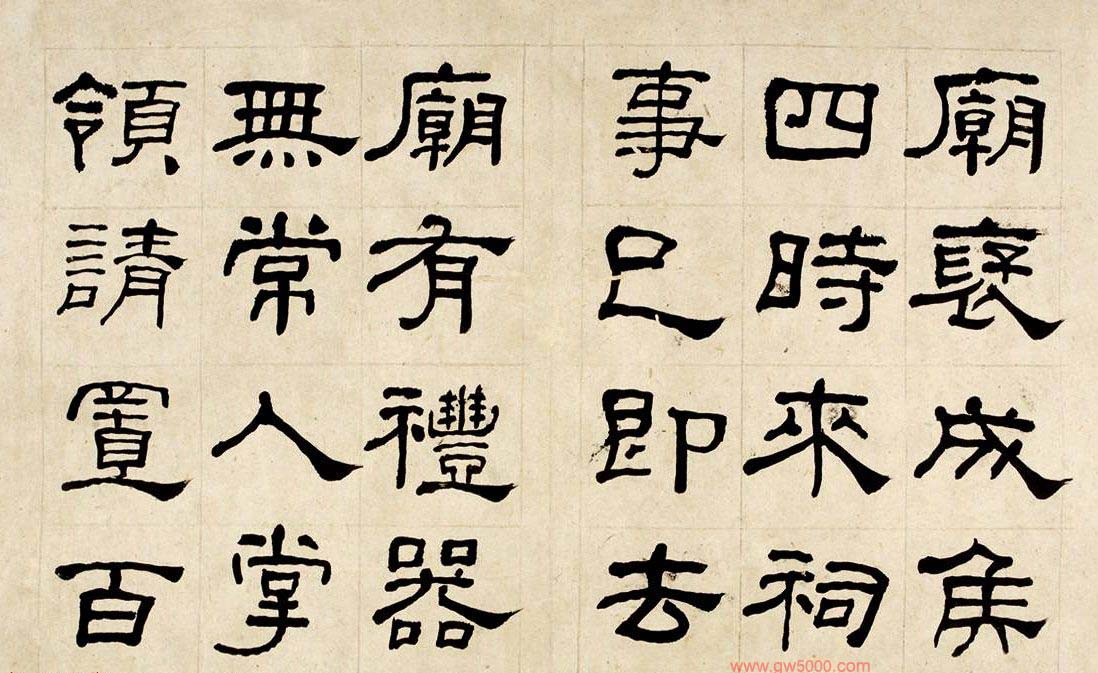 廟襃成侯
四時來祠
事已即去
廟有禮器
無常人掌
領請置百
www.gw5000.com